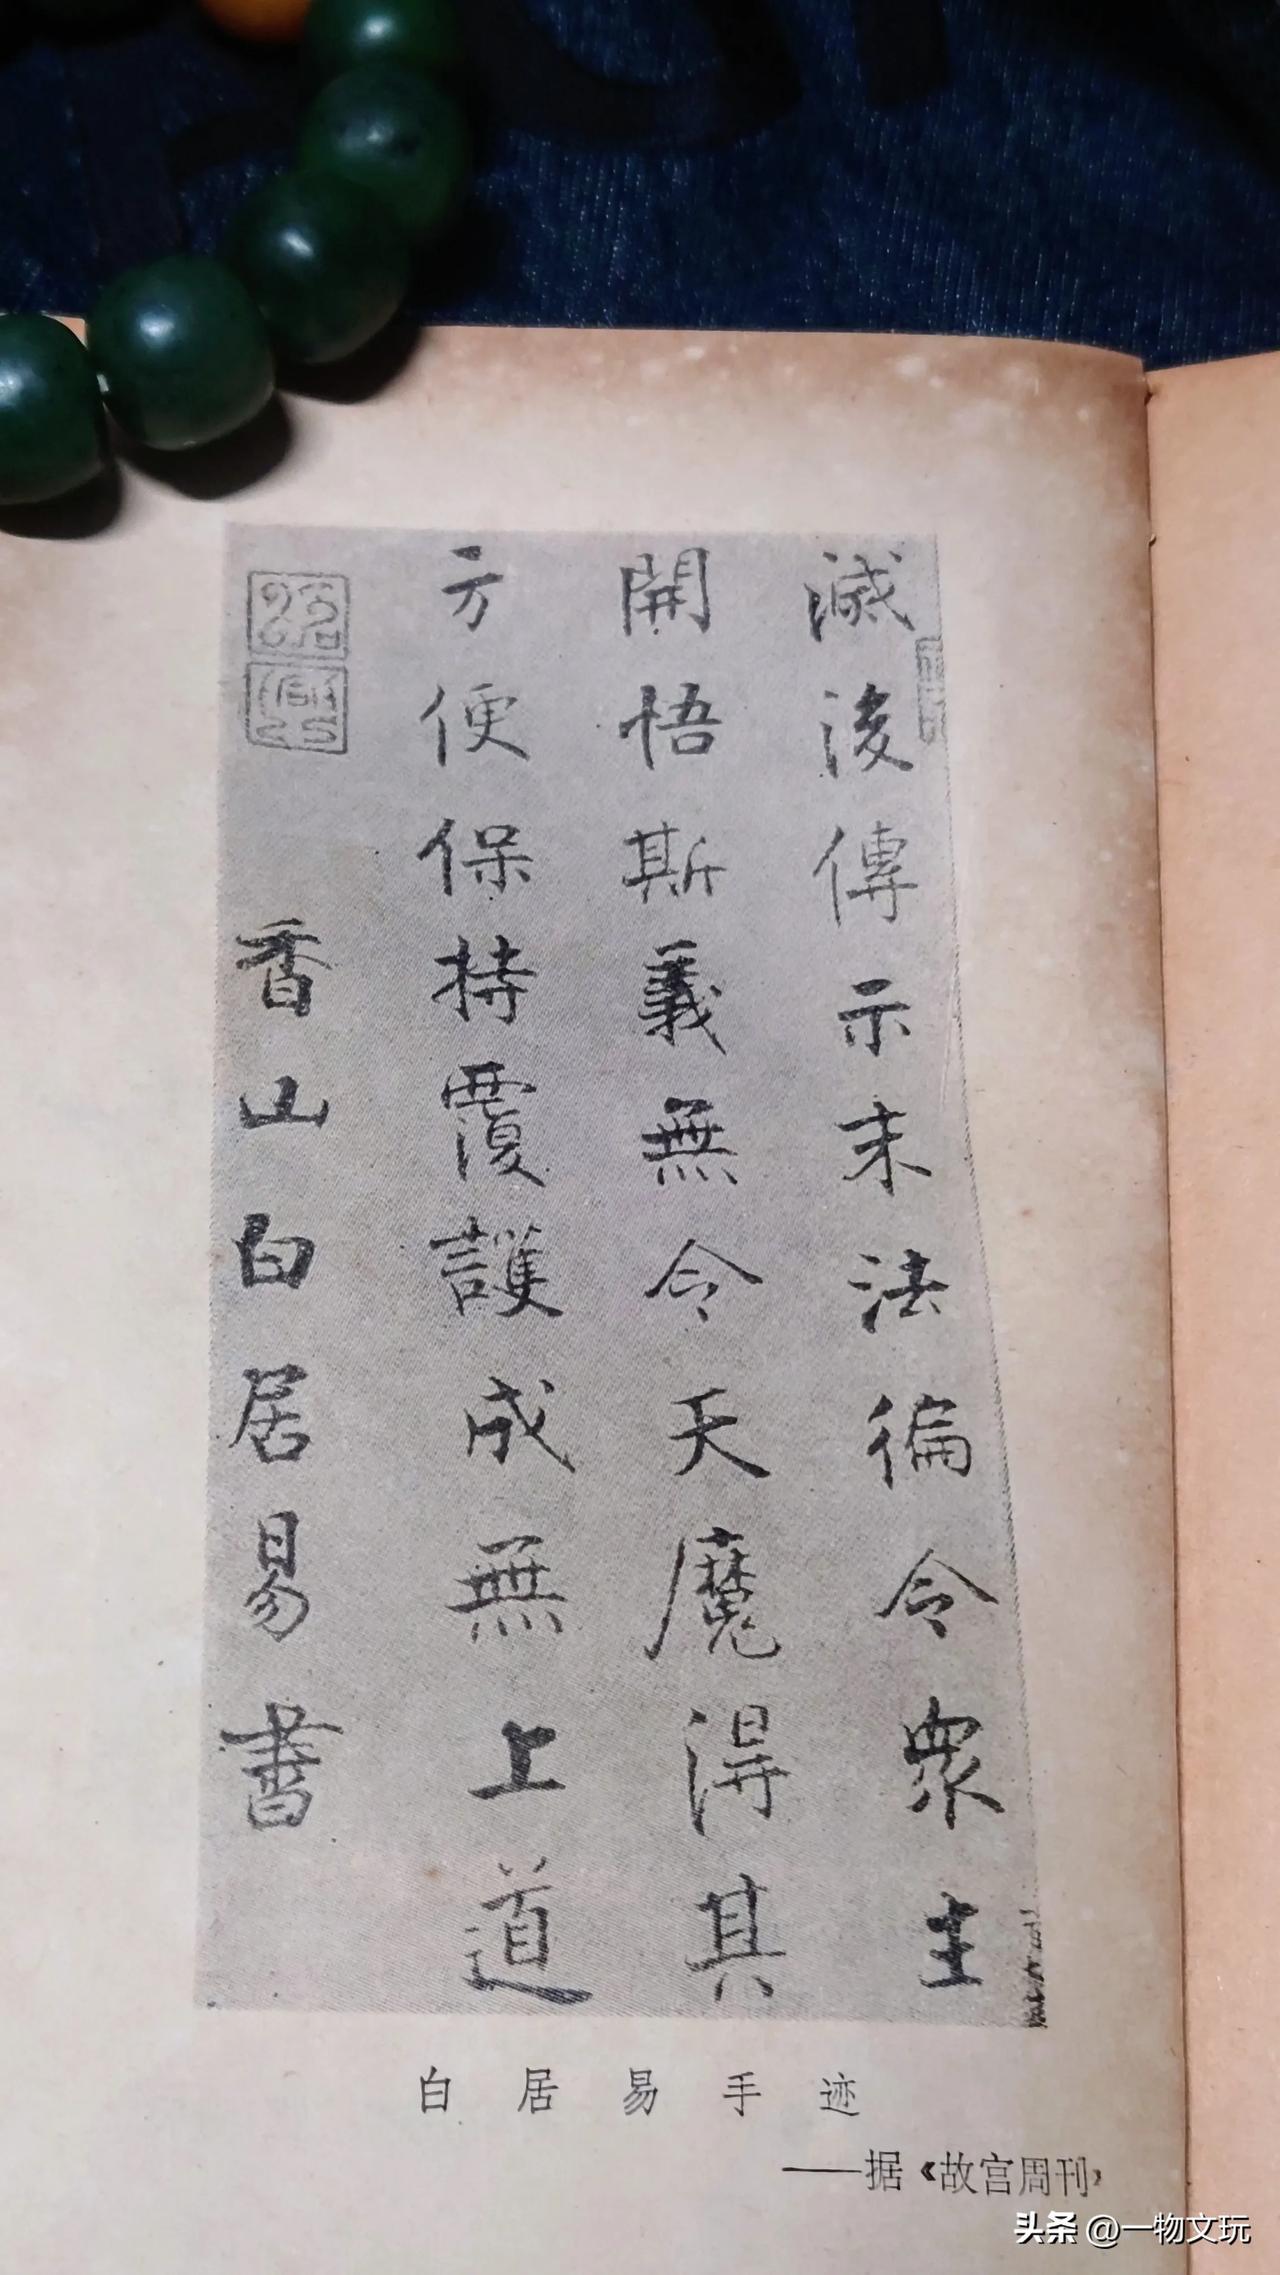 滅後傳示末法徧令衆生
開悟斯義無令天魔得其
方便保持覆護成無上道
香山白居易書
白居易手迹
——据《故宫周刊》
头条 @一物文玩